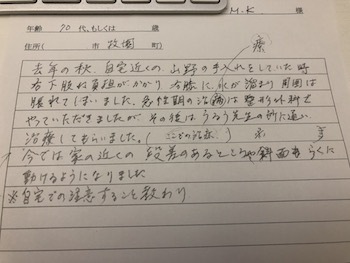 M.K 様
年齢 70 代、もしくは 歳
住所( 市 牧園 町)
療
去年の秋、自宅近くの、山野の手入れをしていた時
右下肢に負担がかかり、右膝に水が溜まり周囲は
腫れてしまいました。急性期の治療は整形外科で
やっていただきましたが、その後はうるう先生の所に通い
治療してもらいました。(
今では家の近くの段差のあるところや斜面もらくに
動けるようになりました
※自宅での注意すること